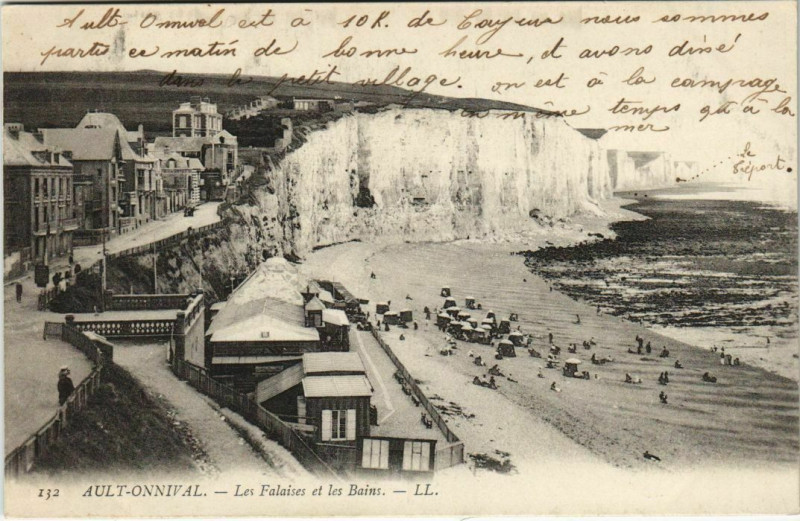 Ault-Onival est à 10K. de Cayeux nous sommes
partis ce matin de bonne heure, et avons dîné
dans le petit village. on est à la campagne
en même temps qu'à la
mer
le
Tréport
132 AULT-ONNIVAL. — Les Falaises et les Bains. — LL.